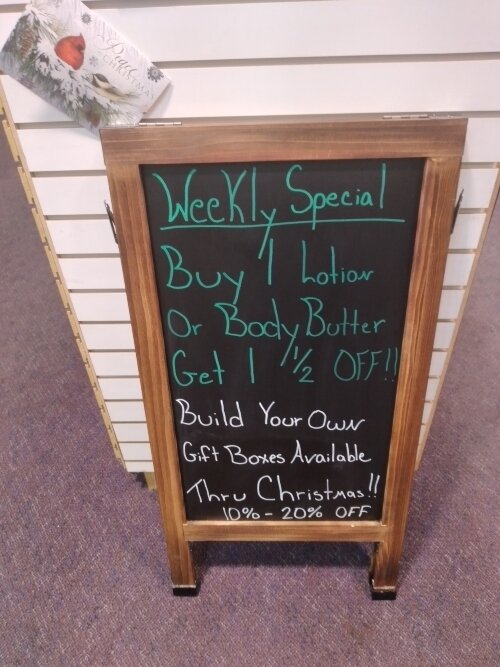 Peace
CHRISTMAS
Weekly Special
Buy 1 Lotion
Or Body Butter
Get 1 1/2 OFF!!
Build Your Own
Gift Boxes Available
Thru Christmas!!
10% - 20% OFF